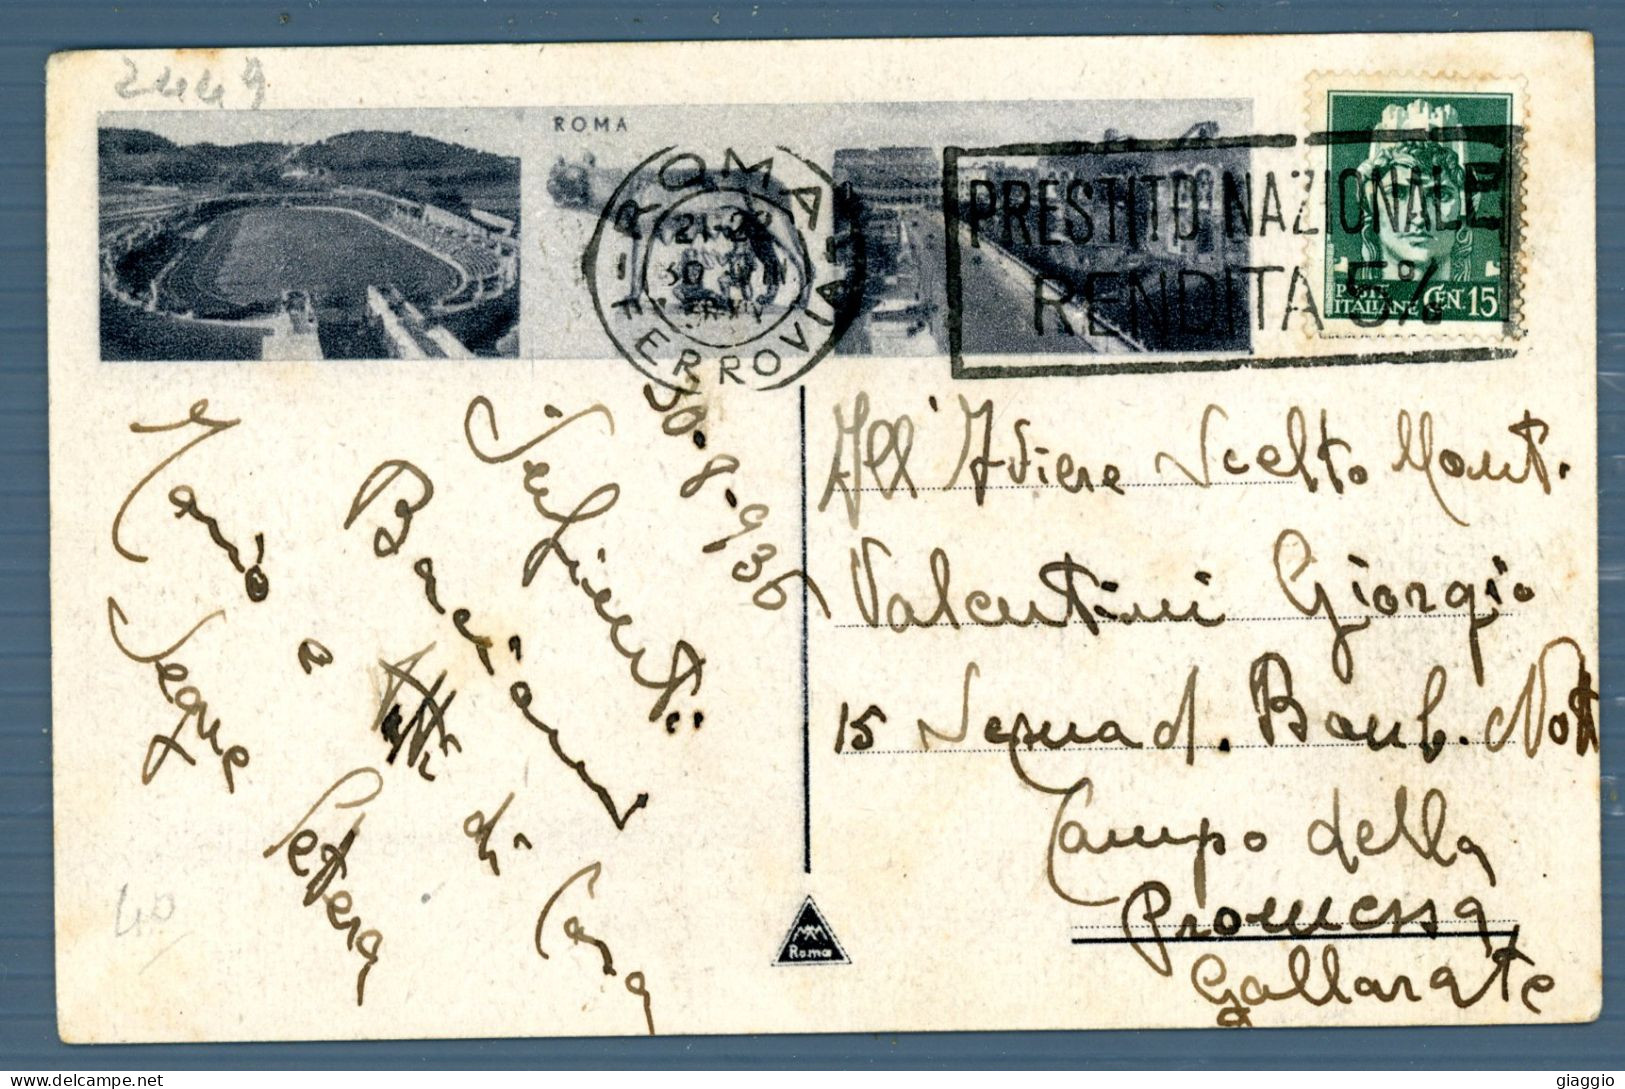 2449
ROMA
ROMA
FERROVIA
21-22
30 VIII
PRESTITO NAZIONALE
RENDITA 5%
POSTE
ITALIANE CENT 15
30-8-936
Infiniti
Bacioni
Mario
a tutti di Casa
Segue Lettera
All'Aviere Scelto Mont.
Valentini Giorgio
15 Stormo d. Bomb. Nott
Campo della
Promessa
Gallarate
40
Roma
giaggio
delcampe.net